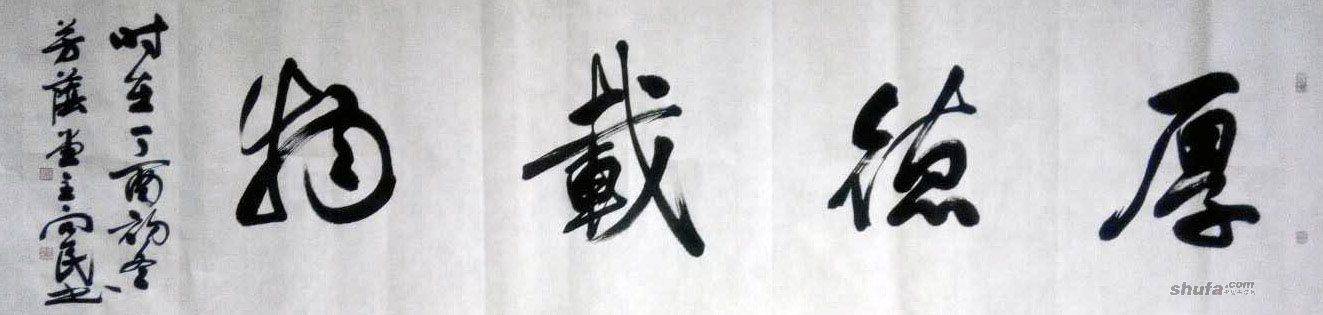 厚德載物
时在丁酉初冬
芳蔭堂主向民书
shufa.com